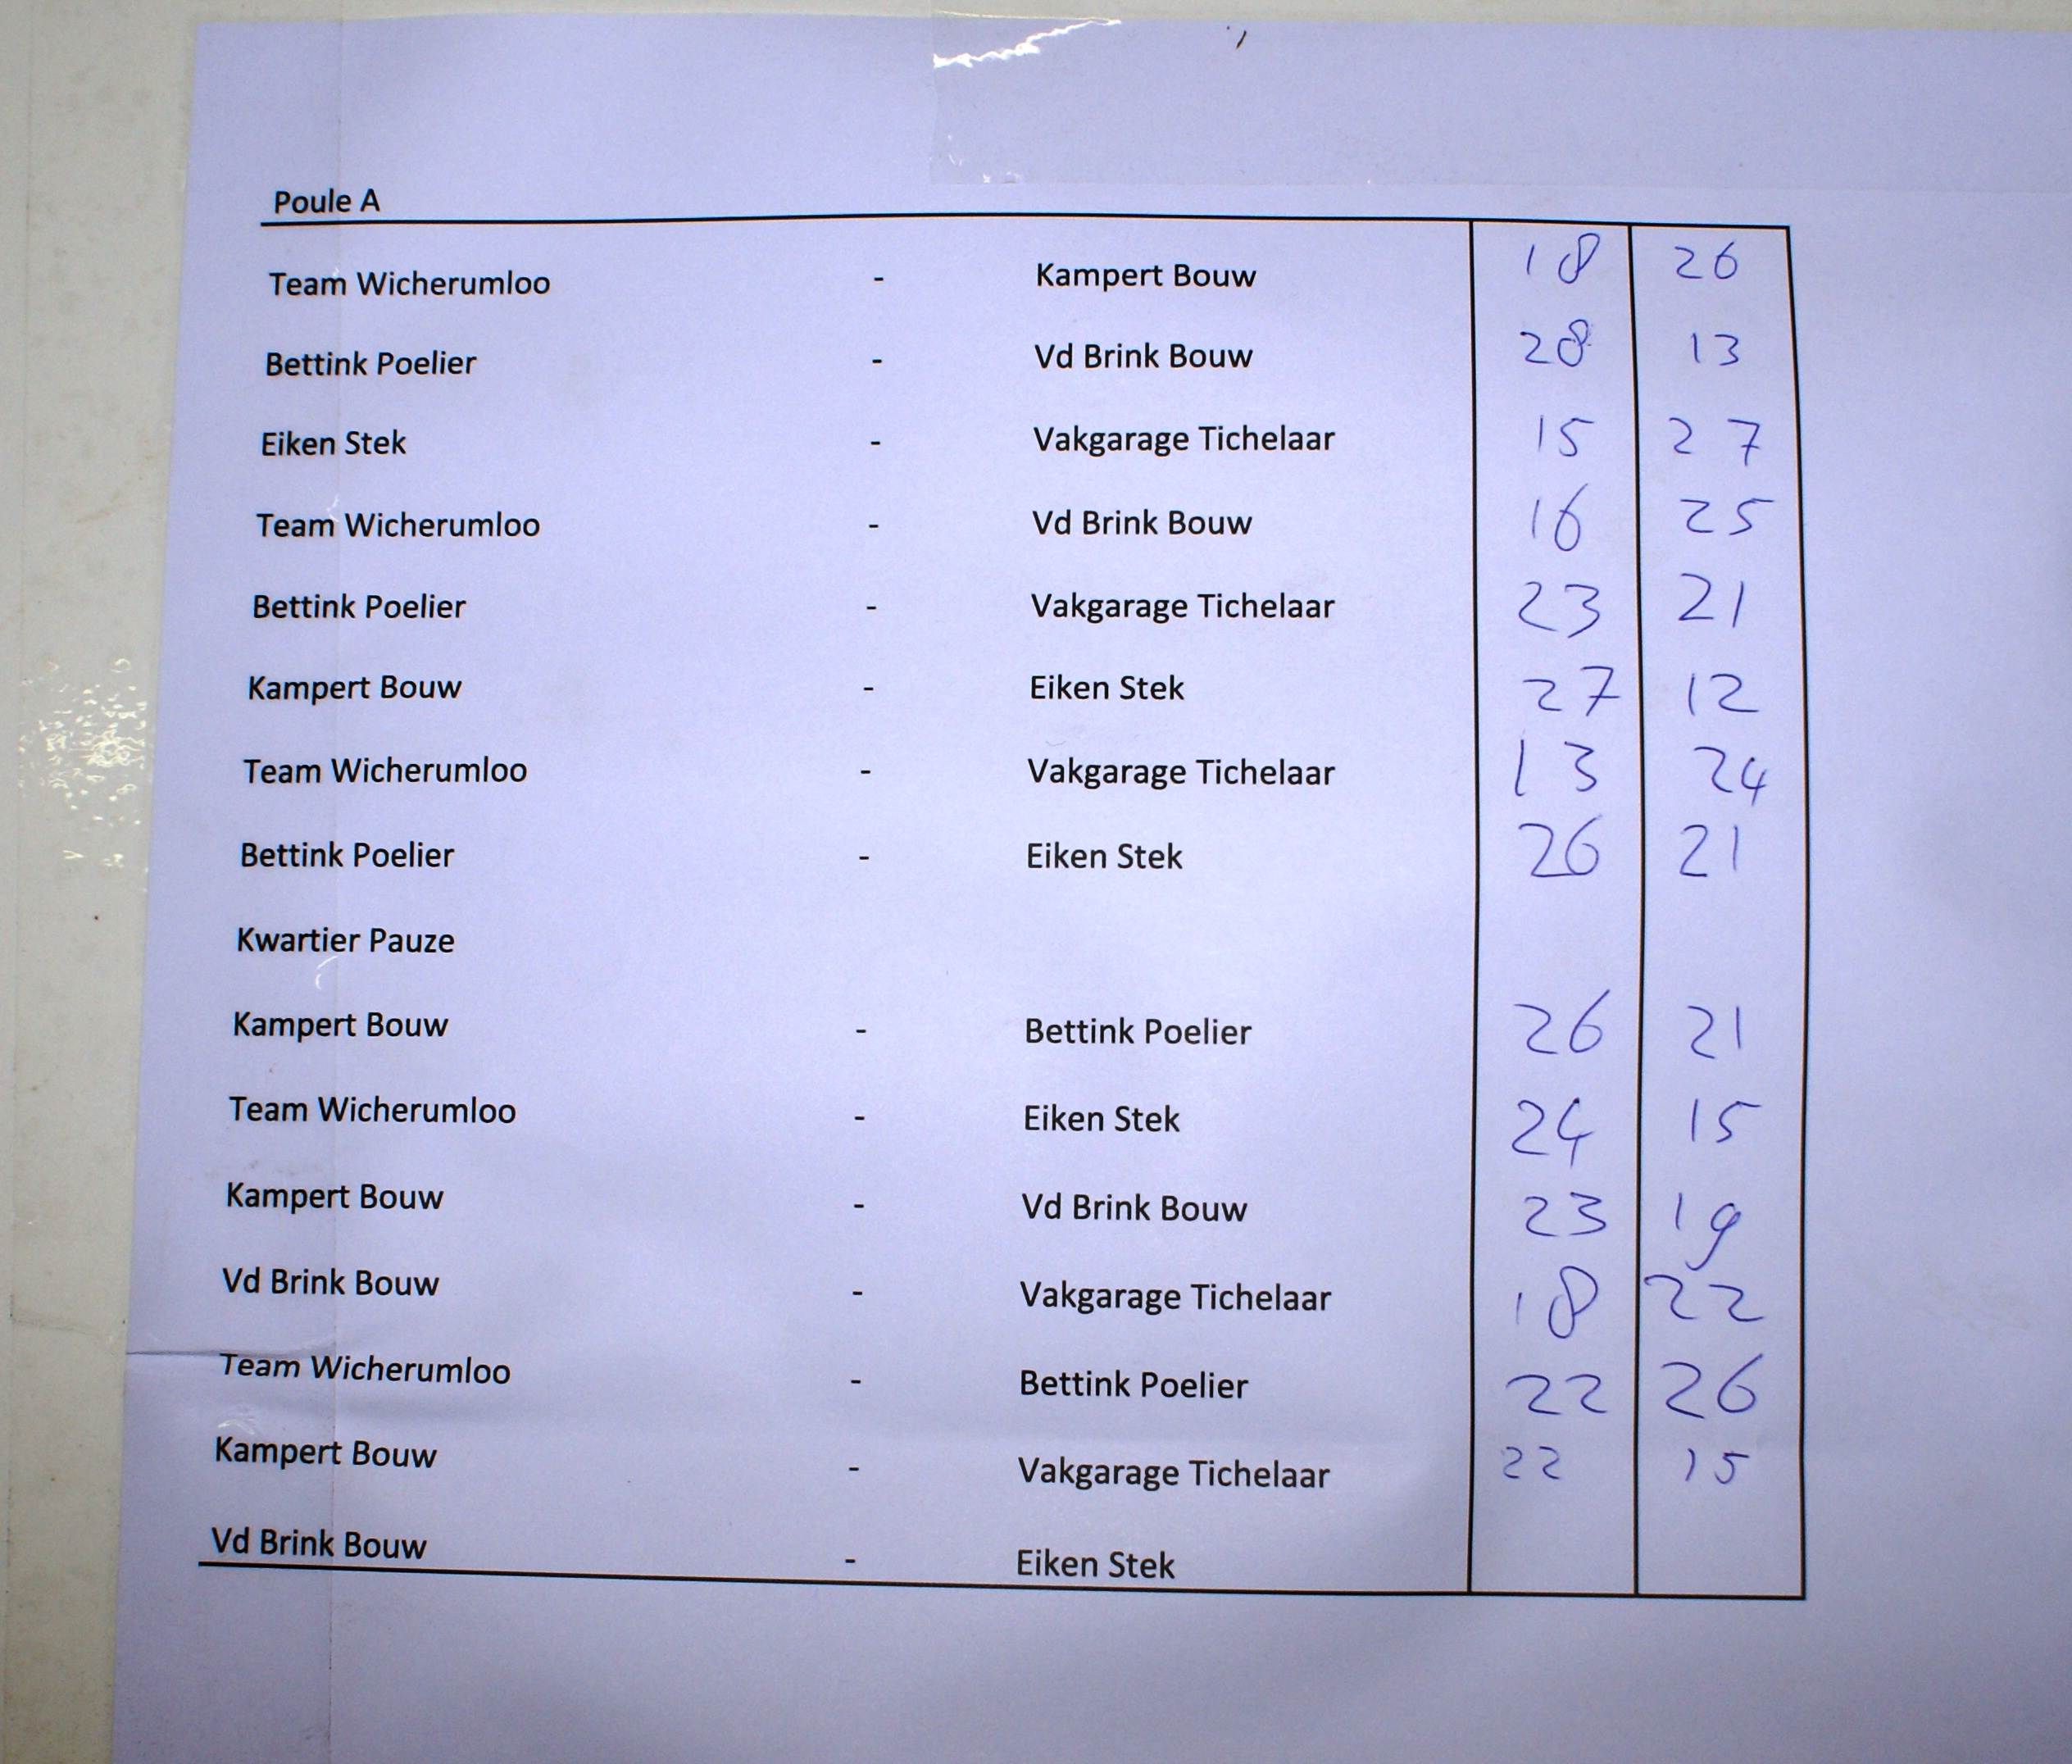 Poule A
Team Wicherumloo - Kampert Bouw 18 26
Bettink Poelier - Vd Brink Bouw 28 13
Eiken Stek - Vakgarage Tichelaar 15 27
Team Wicherumloo - Vd Brink Bouw 16 25
Bettink Poelier - Vakgarage Tichelaar 23 21
Kampert Bouw - Eiken Stek 27 12
Team Wicherumloo - Vakgarage Tichelaar 13 24
Bettink Poelier - Eiken Stek 26 21
Kwartier Pauze
Kampert Bouw - Bettink Poelier 26 21
Team Wicherumloo - Eiken Stek 24 15
Kampert Bouw - Vd Brink Bouw 23 19
Vd Brink Bouw - Vakgarage Tichelaar 18 22
Team Wicherumloo - Bettink Poelier 22 26
Kampert Bouw - Vakgarage Tichelaar 22 15
Vd Brink Bouw - Eiken Stek